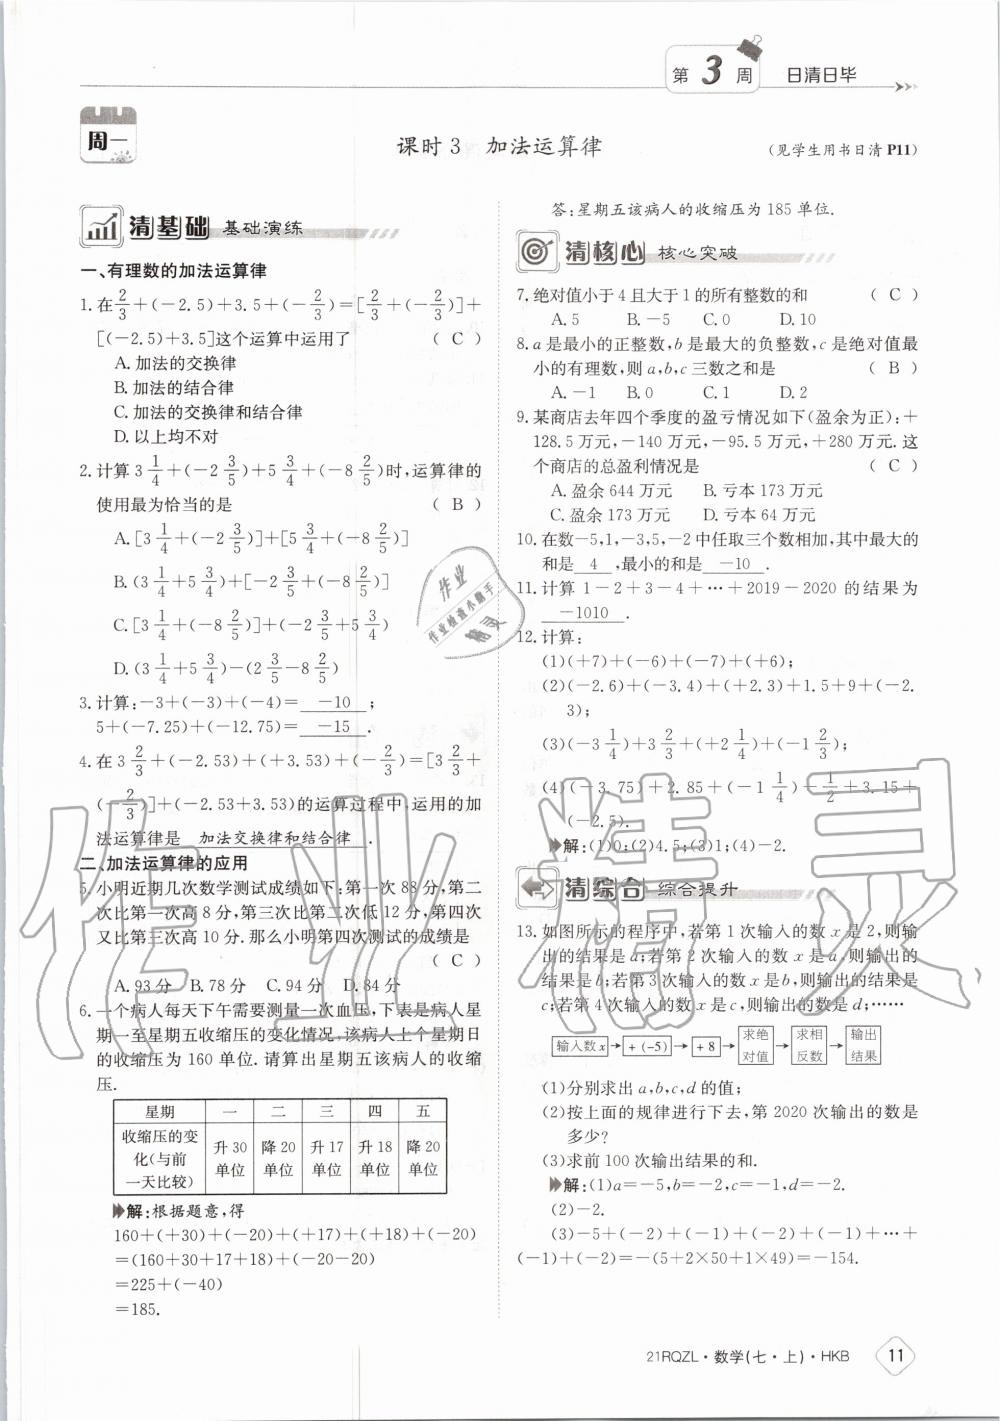 第 3 周 日清日毕
周一
课时 3 加法运算律
(见学生用书日清 P11)
清基础 基础演练
一、有理数的加法运算律
1. 在2/3+(-2.5)+3.5+(-2/3)=[2/3+(-2/3)]+
[(-2.5)+3.5]这个运算中运用了 ( C )
A. 加法的交换律
B. 加法的结合律
C. 加法的交换律和结合律
D. 以上均不对
2. 计算 3 1/4+(-2 3/5)+5 3/4+(-8 2/5)时,运算律的
使用最为恰当的是 ( B )
A. [3 1/4+(-2 3/5)]+[5 3/4+(-8 2/5)]
B. (3 1/4+5 3/4)+[-2 3/5+(-8 2/5)]
C. [3 1/4+(-8 2/5)]+(-2 3/5+5 3/4)
D. (3 1/4+5 3/4)-(2 3/5-8 2/5)
3. 计算:-3+(-3)+(-4)= -10 ;
5+(-7.25)+(-12.75)= -15 .
4. 在 3 2/3+(-2.53)+(+3.53)+(-2/3)=[3 2/3+
(-2/3)]+(-2.53+3.53)的运算过程中,运用的加
法运算律是 加法交换律和结合律 .
二、加法运算律的应用
5. 小明近期几次数学测试成绩如下:第一次 88 分,第二
次比第一次高 8 分,第三次比第二次低 12 分,第四次
又比第三次高 10 分. 那么小明第四次测试的成绩是
( C )
A. 93 分 B. 78 分 C. 94 分 D. 84 分
6. 一个病人每天下午需要测量一次血压,下表是病人星
期一至星期五收缩压的变化情况,该病人上个星期日
的收缩压为 160 单位. 请算出星期五该病人的收缩
压.
星期 一 二 三 四 五
收缩压的变化(与前一天比较) 升 30 单位 降 20 单位 升 17 单位 升 18 单位 降 20 单位
解:根据题意,得
160+(+30)+(-20)+(+17)+(+18)+(-20)
=(160+30+17+18)+(-20-20)
=225+(-40)
=185.
答:星期五该病人的收缩压为 185 单位.
清核心 核心突破
7. 绝对值小于 4 且大于 1 的所有整数的和 ( C )
A. 5 B. -5 C. 0 D. 10
8. a 是最小的正整数,b 是最大的负整数,c 是绝对值最
小的有理数,则 a,b,c 三数之和是 ( B )
A. -1 B. 0 C. 1 D. 2
9. 某商店去年四个季度的盈亏情况如下(盈余为正):+
128.5 万元,-140 万元,-95.5 万元,+280 万元. 这
个商店的总盈利情况是 ( C )
A. 盈余 644 万元 B. 亏本 173 万元
C. 盈余 173 万元 D. 亏本 64 万元
10. 在数-5,1,-3,5,-2 中任取三个数相加,其中最大的
和是 4 ,最小的和是 -10 .
11. 计算 1-2+3-4+…+2019-2020 的结果为
-1010 .
12. 计算:
(1)(+7)+(-6)+(-7)+(+6);
(2)(-2.6)+(-3.4)+(+2.3)+1.5+9+(-2.
3);
(3)(-3 1/4)+3 2/3+(+2 1/4)+(-1 2/3);
(4)(-3.75)+2.85+(-1 1/4)+1/2+3.15+
(-2.5).
解:(1)0;(2)4.5;(3)1;(4)-2.
清综合 综合提升
13. 如图所示的程序中,若第 1 次输入的数 x 是 2,则输
出的结果是 a;若第 2 次输入的数 x 是 a,则输出的
结果是 b;若第 3 次输入的数 x 是 b,则输出的结果是
c;若第 4 次输入的数 x 是 c,则输出的数是 d;……
输入数 x → +(-5) → +8 → 求绝对值 → 求相反数 → 输出结果
(1)分别求出 a,b,c,d 的值;
(2)按上面的规律进行下去,第 2020 次输出的数是
多少?
(3)求前 100 次输出结果的和.
解:(1)a=-5,b=-2,c=-1,d=-2.
(2)-2.
(3)-5+(-2)+(-1)+(-2)+(-1)+…+
(-1)+(-2)=-(5+2×50+1×49)=-154.
作业精灵
作业
作业检查小助手
精灵
21RQZL·数学(七·上)·HKB 11